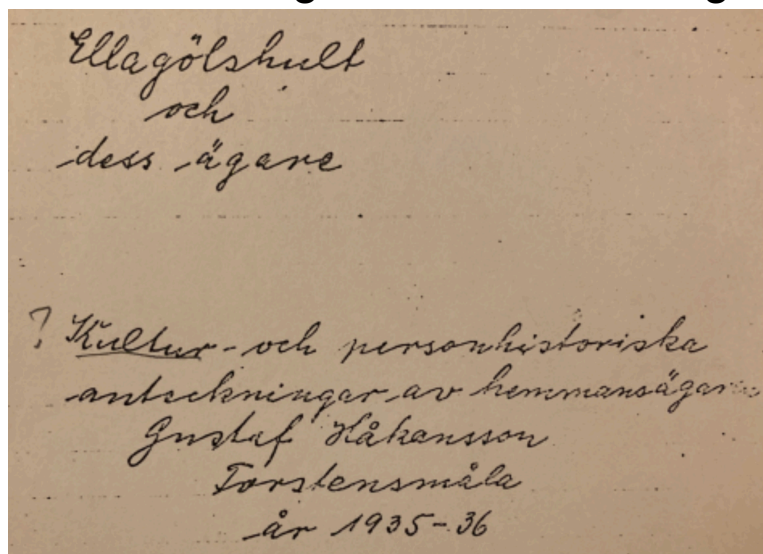 Ellagölshult
och
dess ägare
? Kultur- och personhistoriska
anteckningar av hemmansägaren
Gustaf Håkansson
Torstensmåla
år 1935-36